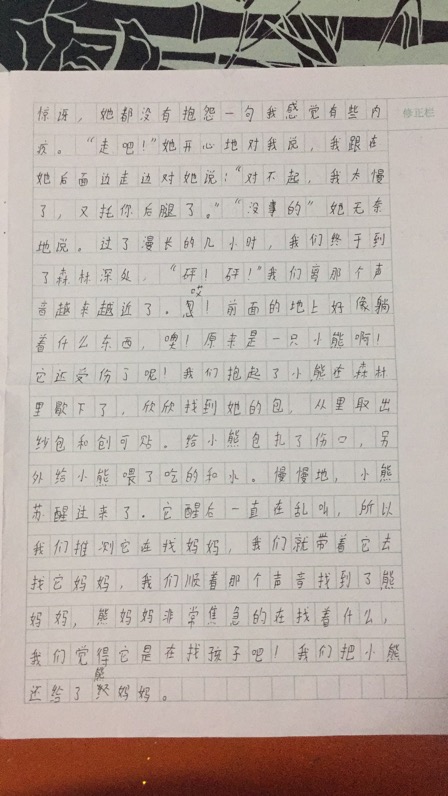 惊讶，她都没有抱怨一句我感觉有些内
疚。“走吧！”她开心地对我说，我跟在
她后面边走边对她说：“对不起，我太慢
了，又托你后腿了。”“没事的”她无奈
地说。过了漫长的几小时，我们终于到
了森林深处，“砰！砰！”我们离那个声
音越来越近了。哎！前面的地上好像躺
着什么东西，噢！原来是一只小熊啊！
它还受伤了呢！我们抱起了小熊在森林
里歇下了，欣欣找到她的包，从里取出
纱包和创可贴。给小熊包扎了伤口，另
外给小熊喂了吃的和水。慢慢地，小熊
苏醒过来了。它醒后一直在乱叫，所以
我们推测它在找妈妈，我们就带着它去
找它妈妈，我们顺着那个声音找到了熊
妈妈，熊妈妈非常焦急的在找着什么，
我们觉得它是在找孩子吧！我们把小熊
还给了熊妈妈。
修正栏